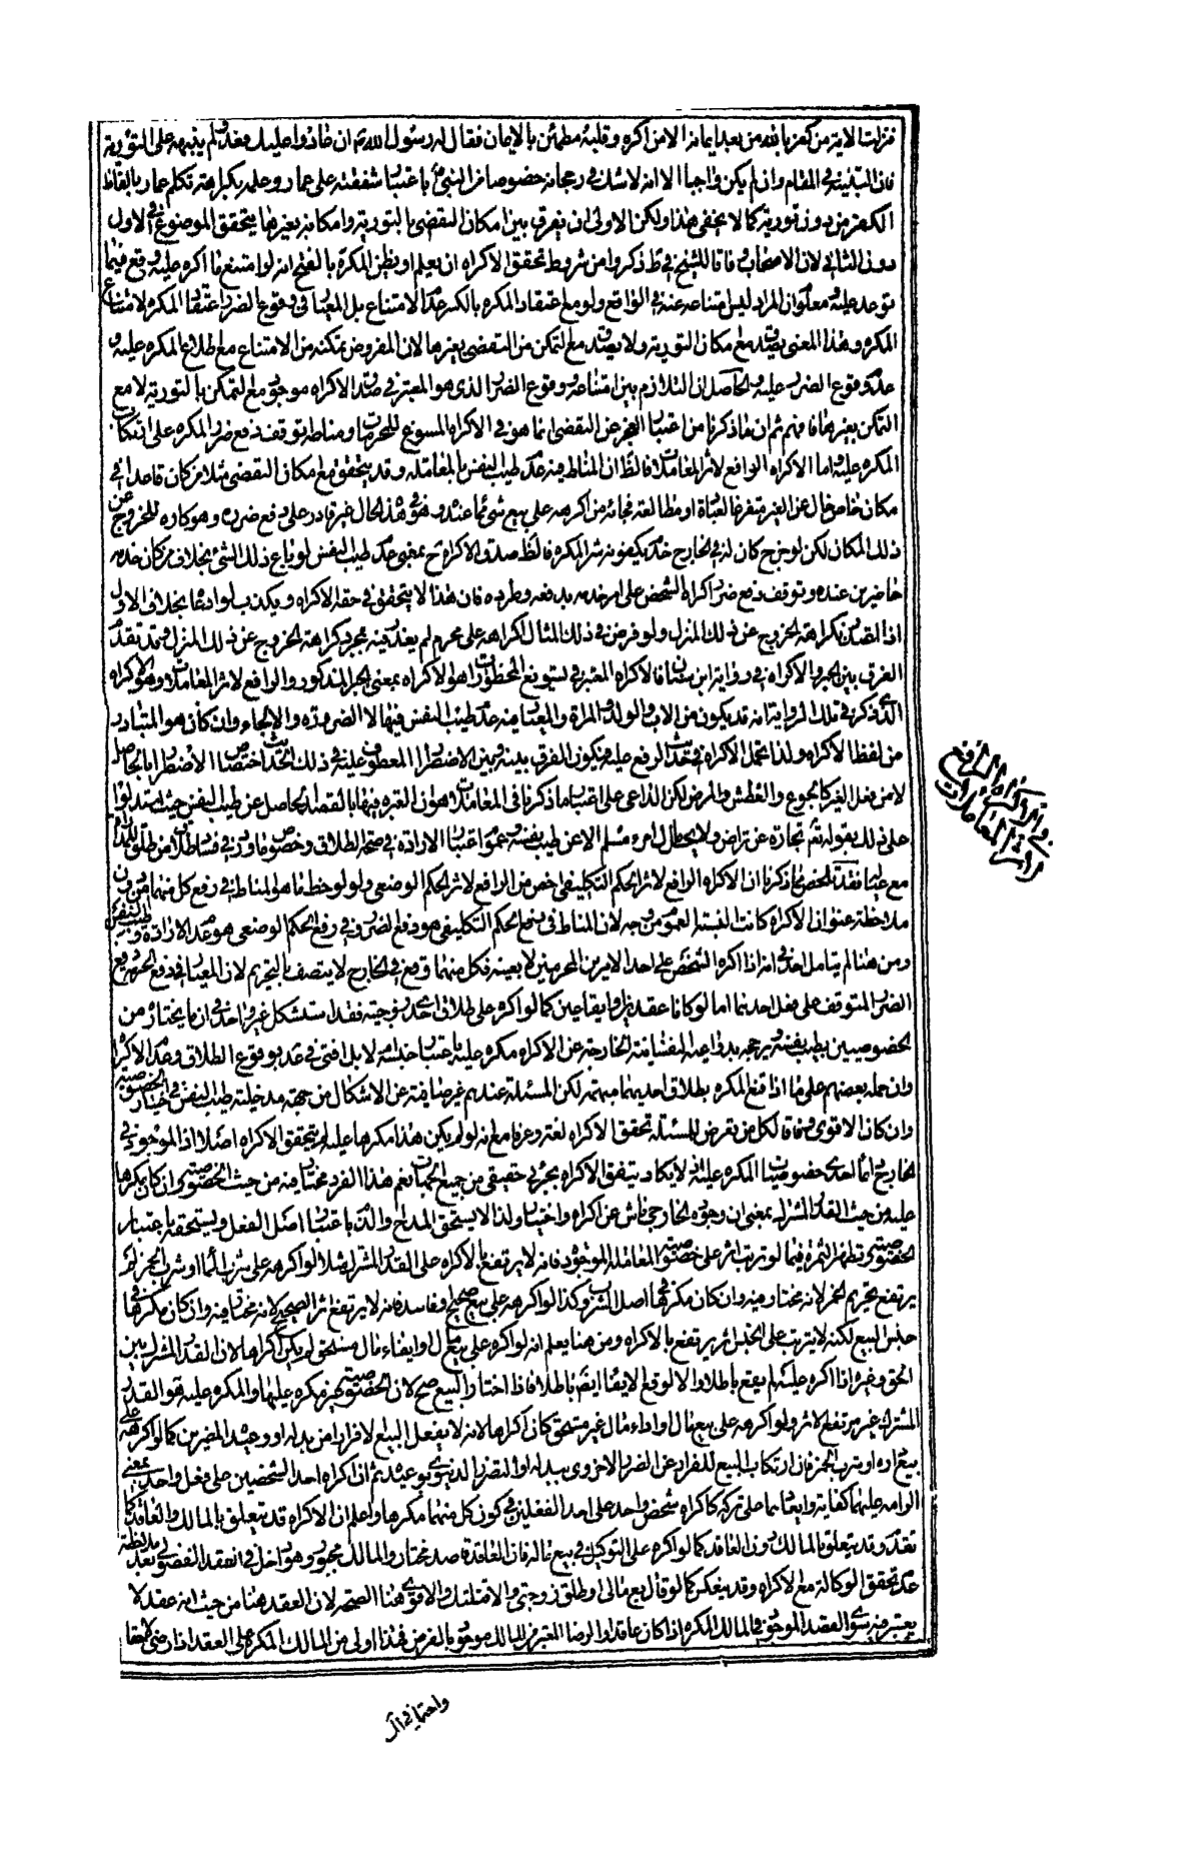 فنزلت الاية من كفر بالله من بعد ايمانه الا من اكره وقلبه مطمئن بالايمان فقال له رسول الله ص ان عادوا عليك فعد ولم ينبهه على التورية
فان التنبيه في المقام وان لم يكن واجبا الا انه لا شك في رجحانه خصوصا من النبي ص باعتبار شفقته على عمار وعلمه بكراهة تكلم عمار بالفاظ
الكفر من دون تورية كما لا يخفى هذا ولكن الاولى ان يفرق بين امكان التفصي بالتورية وامكانه بغيرها بتحقق الموضوع في الاول
دون الثاني لان الاصحاب وفاقا للشيخ في ط ذكروا من شروط تحقق الاكراه ان يعلم او يظن المكره بالفتح انه لو امتنع مما اكره عليه وقع فيما
توعد عليه ومعلوم ان المراد ليس امتناعه عنه في الواقع ولو مع اعتقاد المكره بالكسر عدم الامتناع بل المعيار في وقوع الضرر اعتقاد المكره لامتناع
المكره وهذا المعنى يصدق مع امكان التورية ولا يصدق مع التمكن من التفصي بغيرها لان المفروض تمكنه من الامتناع مع اطلاع المكره عليه و
عدم وقوع الضرر عليه والحاصل ان التلازم بين امتناعه ووقوع الضرر الذي هو المعتبر في صدق الاكراه موجود مع التمكن بالتورية لا مع
التمكن بغيرها فافهم ثم ان ما ذكرنا من اعتبار العجز عن التفصي انما هو في الاكراه المسوغ للمحرمات ومناطه توقف دفع ضرر المكره على ارتكاب
المكره عليه واما الاكراه الرافع لاثر المعاملات فالظ ان المناط فيه عدم طيب النفس بالمعاملة وقد يتحقق مع امكان التفصي مثلا من كان قاعدا في
مكان خاص خال عن الغير متفرغا لعبادة او مطالعة فجائه من اكرهه على بيع شيء مما عنده وهو في هذه الحال غير قادر على دفع ضرره وهو كاره للخروج عن
ذلك المكان لكن لو خرج كان له في الخارج خدم يكفونه شر المكره فالظ صدق الاكراه ح بمعنى عدم طيب النفس لو باع ذلك الشيء بخلاف من كان خدمه
حاضرين عنده وتوقف دفع ضرر اكراه الشخص على امر خدمه بدفعه وطرده فان هذا لا يتحقق في حقه الاكراه ويكذب لو ادعاه بخلاف الاول
اذا اعتذر بكراهة الخروج عن ذلك المنزل ولو فرض في ذلك المثال اكراهه على محرم لم يعذر فيه بمجرد كراهة الخروج عن ذلك المنزل وقد تقدم
الفرق بين الجبر والاكراه في رواية ابن سنان فالاكراه المعتبر في تسويغ المحظورات هو الاكراه بمعنى الجبر المذكور والرافع لاثر المعاملات وهو الاكراه
الذي ذكر في تلك الرواية انه قد يكون من الاب والولد والمراة والمعيار فيه عدم طيب النفس فيها لا الضرورة والالجاء وان كان هو المتبادر
من لفظ الاكراه ولذا يحمل الاكراه في حديث الرفع عليه فيكون الفرق بينه وبين الاضطرار المعطوف عليه في ذلك الحديث اختصاص الاضطرار بالحاصل
لا من فعل الغير كالجوع والعطش والمرض لكن الداعي على اعتبار ما ذكرنا في المعاملات هو ان العبرة فيها بالقصد الحاصل عن طيب النفس حيث استدلوا
على ذلك بقوله تع تجارة عن تراض ولا يحل مال امرء مسلم الا عن طيب نفسه وعموم اعتبار الارادة في صحة الطلاق وخصوص ما ورد في فساد طلاق من طلق للمداراة
مع عياله فقد تلخص مما ذكرنا ان الاكراه الرافع لاثر الحكم التكليفي اخص من الرافع لاثر الحكم الوضعي ولو لوحظ ما هو المناط في رفع كل منهما من دون
ملاحظة عنوان الاكراه كانت النسبة العموم من وجه لان المناط في رفع الحكم التكليفي هو دفع الضرر وفي رفع الحكم الوضعي هو عدم الارادة وطيب النفس
ومن هنا لم يتامل احد في انه اذا اكره الشخص على احد الامرين المحرمين لا بعينه فكل منهما وقع في الخارج لا يتصف بالتحريم لان المعيار في دفع الحرمة دفع
الضرر المتوقف على فعل احدهما اما لو كانا عقدين او ايقاعين كما لو اكره على طلاق احدى زوجتيه فقد استشكل غير واحد في ان ما يختاره من
الخصوصيتين بطيب نفسه ويرجحه بدواعيه النفسانية الخارجة عن الاكراه مكره عليه باعتبار جنسه ام لا بل افتى في عد بوقوع الطلاق وعدم الاكراه
وان حمله بعضهم على ما اذا قنع المكره بطلاق احديهما مبهمة لكن المسئلة عندهم غير صافية عن الاشكال من جهة مدخلية طيب النفس في اختيار الخصوصية
وان كان الاقوى وفاقا لكل من تعرض للمسئلة تحقق الاكراه لغة وعرفا مع انه لو لم يكن هذا مكرها عليه لم يتحقق الاكراه اصلا اذ الموجود في
الخارج دائما احدى خصوصيات المكره عليه اذ لا يكاد يتفق الاكراه بجزئي حقيقي من جميع الجهات نعم هذا الفرد مختار فيه من حيث الخصوصية وان كان مكرها
عليه من حيث القدر المشترك بمعنى ان وجوده الخارجي ناش عن اكراه واختيار ولذا لا يستحق المدح والذم باعتبار اصل الفعل ويستحقه باعتبار
الخصوصية وتظهر الثمرة فيما لو ترتب اثر على خصوصية المعاملة الموجودة فانه لا يرتفع بالاكراه على القدر المشترك مثلا لو اكرهه على شرب الماء او شرب الخمر لم
يرتفع تحريم الخمر لانه مختار فيه وان كان مكرها في اصل الشرب وكذا لو اكرهه على بيع صحيح او فاسد فانه لا يرتفع اثر الصحيح لانه مختار فيه وان كان مكرها في
جنس البيع لكنه لا يترتب على الجنس اثر يرتفع بالاكراه ومن هنا يعلم انه لو اكره على بيع مال او ايفاء مال مستحق لم يكن اكراها لان القدر المشترك بين
الحق وغيره اذا اكره عليه لم يقع باطلا والا لوقع الايفاء ايضم باطلا فاذا اختار البيع صح لان الخصوصية غير مكره عليها والمكره عليه هو القدر
المشترك غير مرتفع الاثر ولو اكرهه على بيع مال او اداء مال غير مستحق كان اكراها لانه لا يفعل البيع الا فرارا من بدله او وعيده المضرين كما لو اكرهه على
بيع داره او شرب الخمر فان ارتكاب البيع للفرار عن الضرر الاخروي ببدله او التضرر الدنيوي بوعيده ثم ان اكراه احد الشخصين على فعل واحد بمعنى
الزامه عليهما كفاية وايعادهما على تركه كاكراه شخص واحد على احد الفعلين في كون كل منهما مكرها واعلم ان الاكراه قد يتعلق بالمالك والعاقد كما
تقدم وقد يتعلق بالمالك دون العاقد كما لو اكره على التوكيل في بيع ماله فان العاقد قاصد مختار والمالك مجبور وهو داخل في العقد الفضولي بعد ملاحظة
عدم تحقق الوكالة مع الاكراه وقد ينعكس كما لو قال بع مالي او طلق زوجتي والا قتلتك والاقوى هنا الصحة لان العقد هنا من حيث انه عقد لا
يعتبر فيه سوى القصد الموجود في المالك المكره اذا كان عاقدا والرضا المعتبر من المالك موجود بالفرض فهذا اولى من المالك المكره على العقد اذا رضي لاحقا
واحتمال